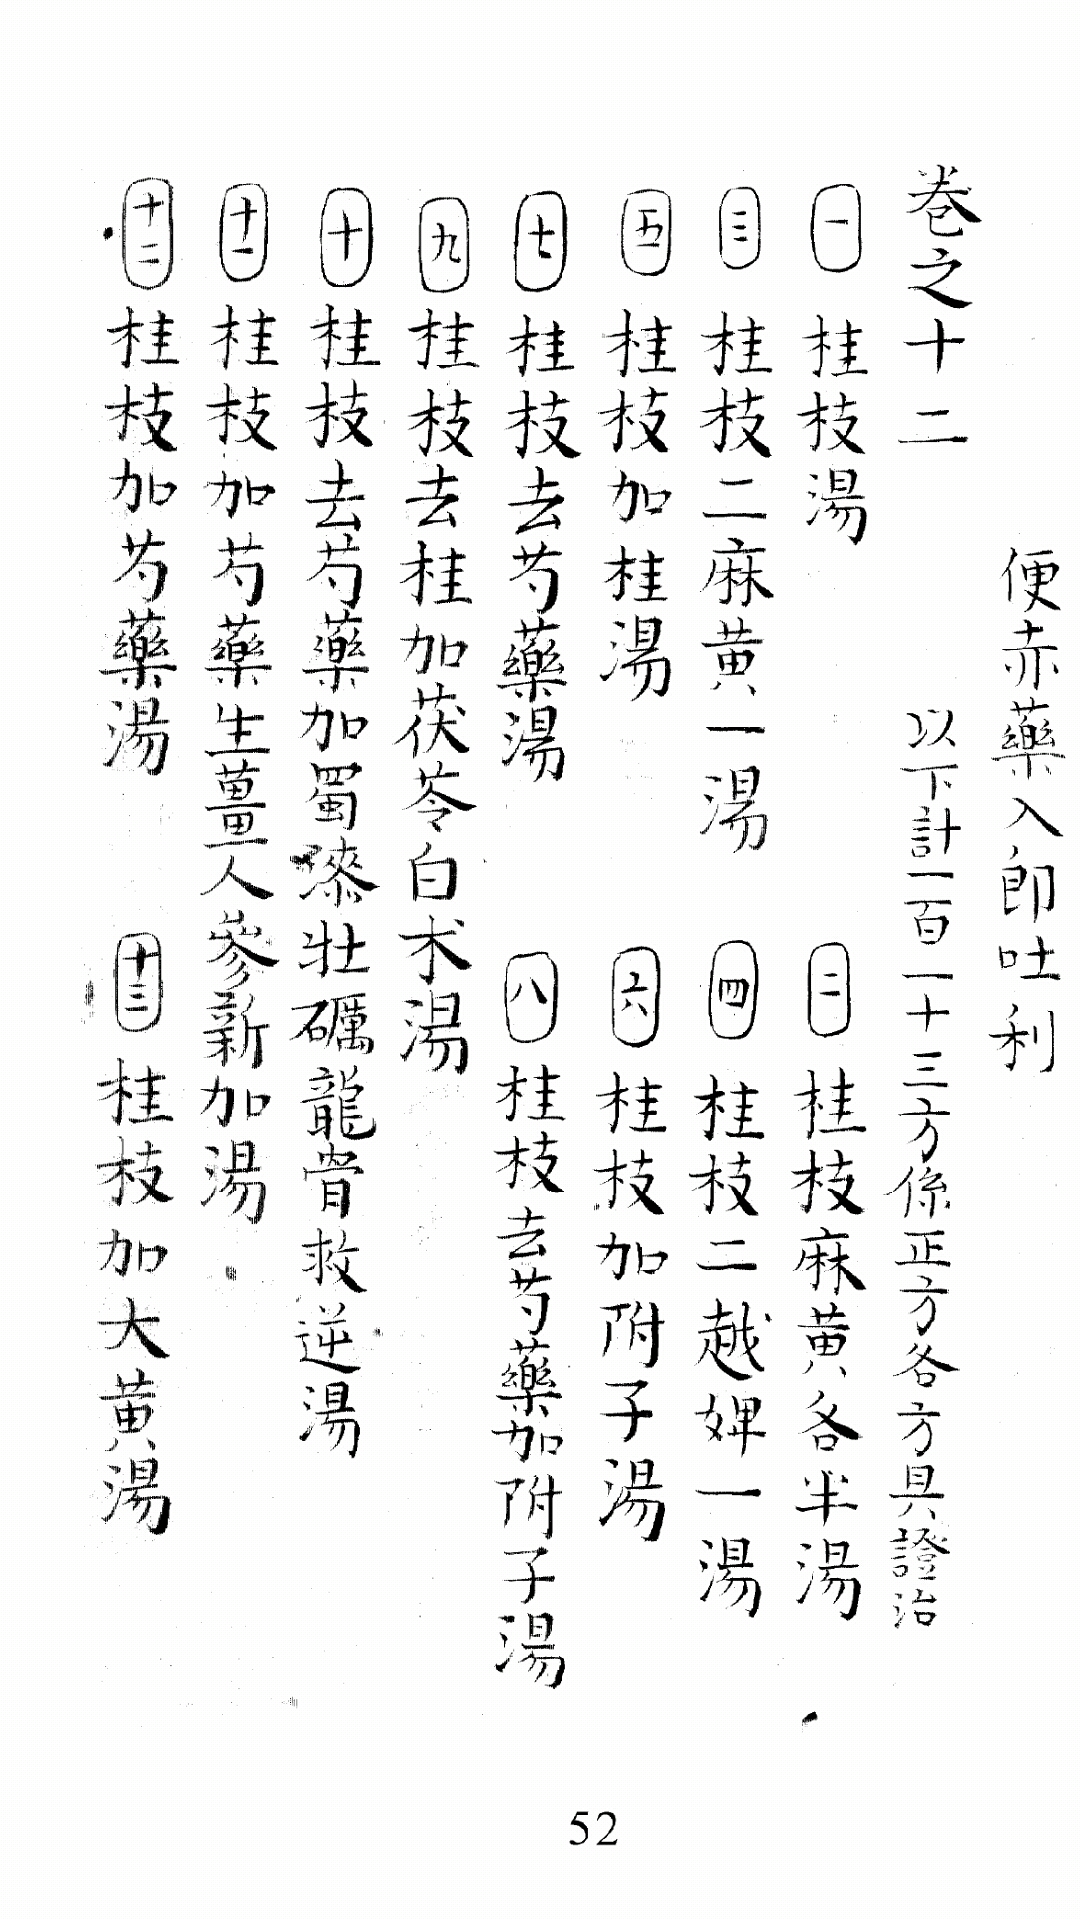 便赤藥入卽吐利
卷之十二 以下計一百一十三方係正方各方具證治
一 桂枝湯 二 桂枝麻黄各半湯
三 桂枝二麻黄一湯 四 桂枝二越婢一湯
五 桂枝加桂湯 六 桂枝加附子湯
七 桂枝去芍藥湯 八 桂枝去芍藥加附子湯
九 桂枝去桂加茯苓白朮湯
十 桂枝去芍藥加蜀漆壯礪龍骨救逆湯
十一 桂枝加芍藥生薑人參新加湯
十二 桂枝加芍藥湯 十三 桂枝加大黄湯
52